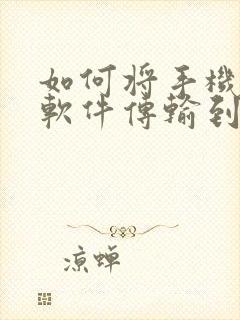 如何将手機
軟件傳輸到
涼蝉